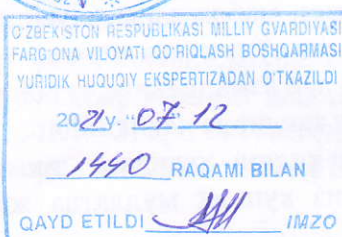 O'ZBEKISTON RESPUBLIKASI MILLIY GVARDIYASI
FARG'ONA VILOYATI QO'RIQLASH BOSHQARMASI
YURIDIK HUQUQIY EKSPERTIZADAN O'TKAZILDI
2021 y. "07" 12
1440 RAQAMI BILAN
QAYD ETILDI IMZO